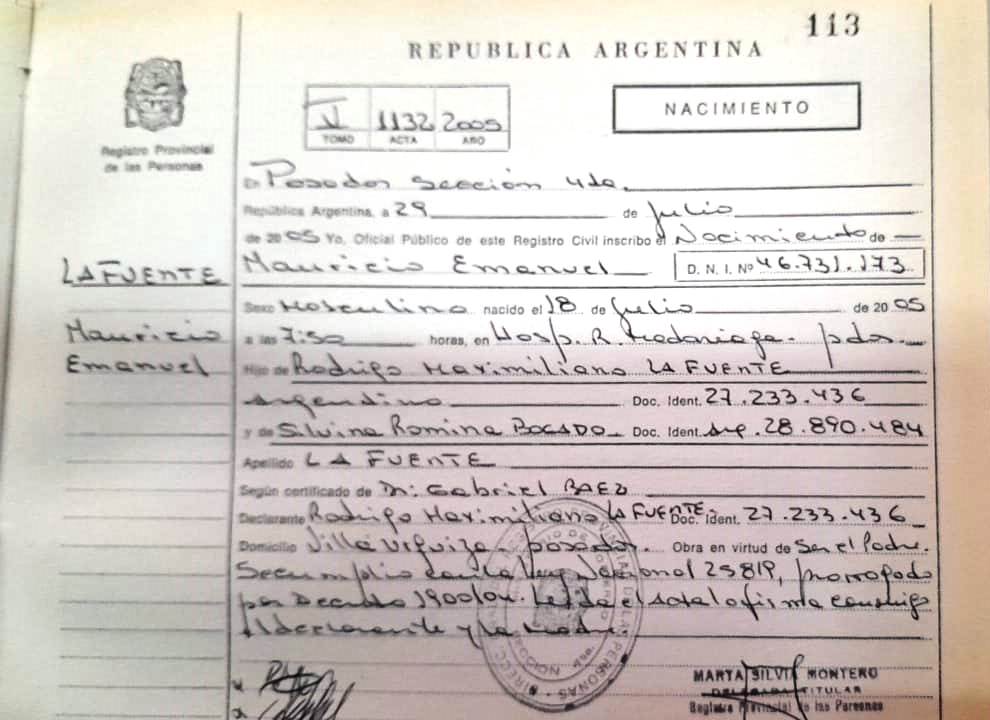 113
REPUBLICA ARGENTINA
V 1132 2005
TOMO ACTA AÑO
NACIMIENTO
Registro Provincial
de las Personas
En Posadas Sección 4ta.
República Argentina, a 29 de Julio
de 2005 Yo, Oficial Público de este Registro Civil inscribo el Nacimiento de
LA FUENTE
Mauricio Emanuel D. N. I. Nº 46.731.173
Sexo Masculino nacido el 18 de Julio de 2005
Mauricio
Emanuel
a las 7:50 horas, en Hosp. R. Madariaga - pdas.
Hijo de Rodrigo Maximiliano LA FUENTE
argentino Doc. Ident. 27.233.436
y de Silvina Romina BOGADO Doc. Ident. Arg. 28.890.484
Apellido LA FUENTE
Según certificado de Dr. Gabriel BAEZ
Declarante Rodrigo Maximiliano LA FUENTE Doc. Ident. 27.233.436
Domicilio Villa Urquiza - posadas. Obra en virtud de Ser el Padre.
Se cumplio con la Ley Nacional 25819, prorrogado
por Decreto 1900/04. Leída el acta la firma conmigo
el declarante y la madre.
MARTA SILVIA MONTERO
DELEGADA TITULAR
Registro Provincial de las Personas